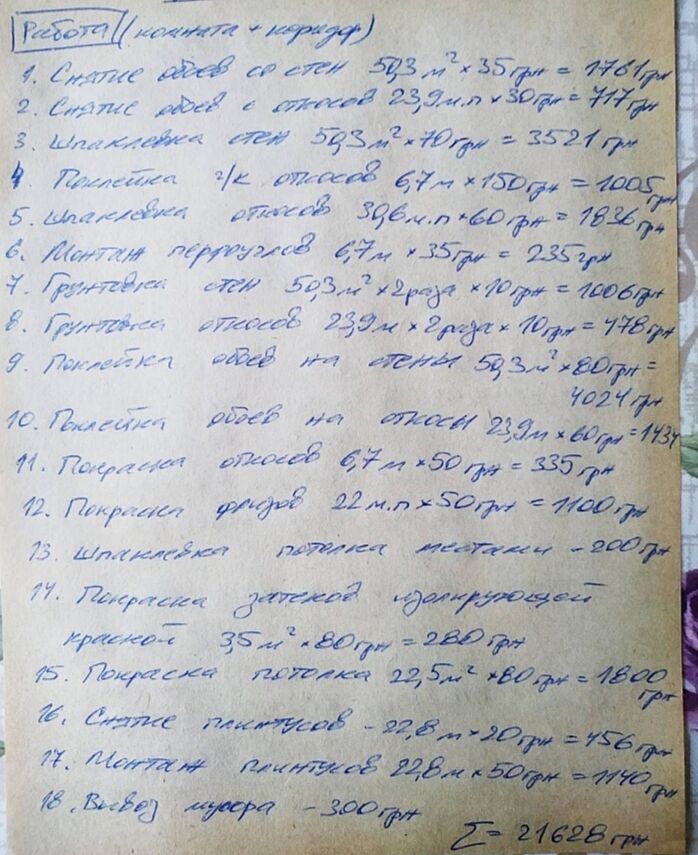 Работа (комната + коридор)
1. Снятие обоев со стен 50,3 м² × 35 грн = 1761 грн
2. Снятие обоев с откосов 23,9 м.п × 30 грн = 717 грн
3. Шпаклевка стен 50,3 м² × 70 грн = 3521 грн
4 Поклейка г/к откосов 6,7 м × 150 грн = 1005 грн
5. Шпаклевка откосов 30,6 м.п × 60 грн = 1836 грн
6. Монтаж перфоуглов 6,7 м × 35 грн = 235 грн
7. Грунтовка стен 50,3 м² × 2 раза × 10 грн = 1006 грн
8. Грунтовка откосов 23,9 м × 2 раза × 10 грн = 478 грн
9. Поклейка обоев на стены 50,3 м² × 80 грн =
4024 грн
10. Поклейка обоев на откосы 23,9 м × 60 грн = 1434
11. Покраска откосов 6,7 м × 50 грн = 335 грн
12. Покраска фризов 22 м.п × 50 грн = 1100 грн
13. Шпаклевка потолка местами - 200 грн
14. Покраска затеков изолирующей
краской 3,5 м² × 80 грн = 280 грн
15. Покраска потолка 22,5 м² × 80 грн = 1800 грн
16. Снятие плинтусов - 22,8 м × 20 грн = 456 грн
17. Монтаж плинтусов 22,8 м × 50 грн = 1140 грн
18. Вывоз мусора - 300 грн
Σ = 21628 грн